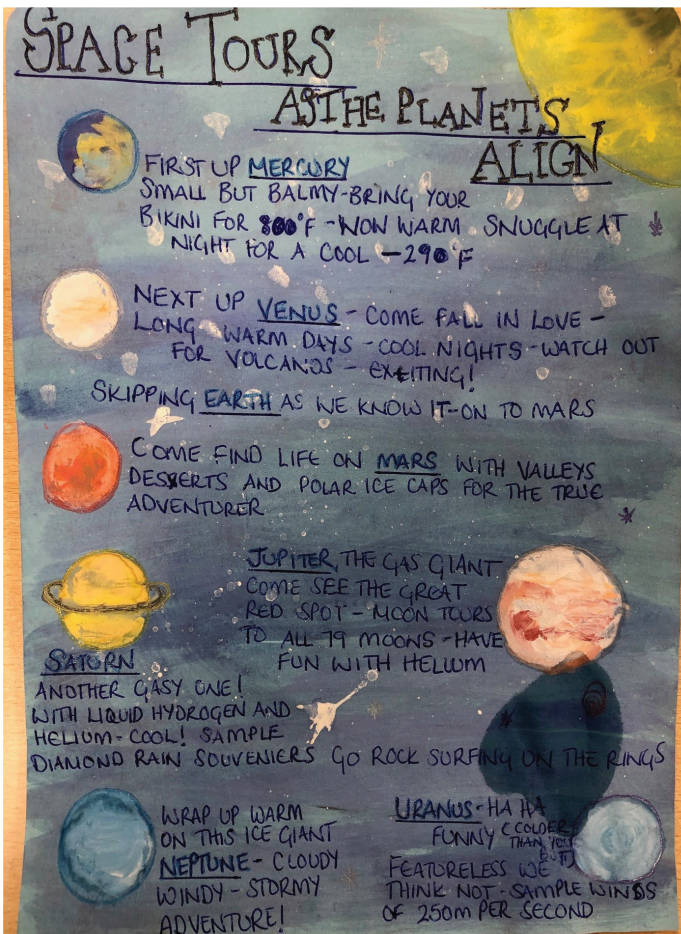 SPACE TOURS
AS THE PLANETS
ALIGN
FIRST UP MERCURY
SMALL BUT BALMY-BRING YOUR
BIKINI FOR 800°F - NON WARM SNUGGLE AT
NIGHT FOR A COOL -290°F
NEXT UP VENUS - COME FALL IN LOVE -
LONG WARM DAYS - COOL NIGHTS - WATCH OUT
FOR VOLCANOS - EXCITING!
SKIPPING EARTH AS WE KNOW IT-ON TO MARS
COME FIND LIFE ON MARS WITH VALLEYS
DESSERTS AND POLAR ICE CAPS FOR THE TRUE
ADVENTURER
JUPITER, THE GAS GIANT
COME SEE THE GREAT
RED SPOT - MOON TOURS
TO ALL 79 MOONS - HAVE
FUN WITH HELIUM
SATURN
ANOTHER GASY ONE!
WITH LIQUID HYDROGEN AND
HELIUM - COOL! SAMPLE
DIAMOND RAIN SOUVENIERS GO ROCK SURFING ON THE RINGS
WRAP UP WARM
ON THIS ICE GIANT
NEPTUNE - CLOUDY
WINDY - STORMY
ADVENTURE!
URANUS - HA HA
FUNNY (COLDER
THAN YOU
FEATURELESS WE
THINK NOT - SAMPLE WINDS
OF 250M PER SECOND